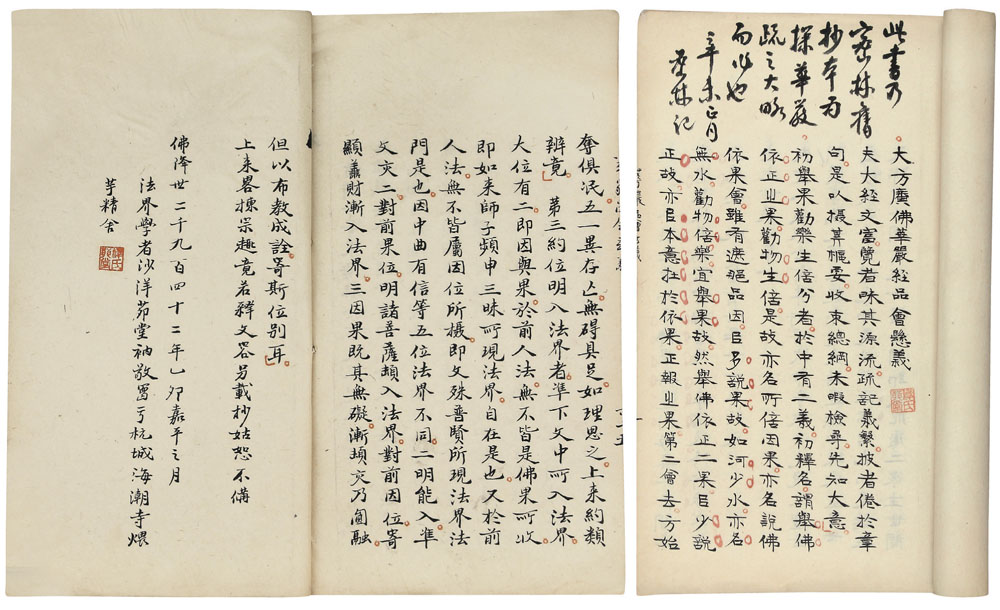 此書乃
密林舊
抄本為
探華嚴
疏之大略
而作也
辛未正月
密林記
大方廣佛華嚴經品會懸義
夫大經文富覽者味其源流疏記義繁披者倦於章
句是以撮其樞要收束總綱未暇檢尋先知大意
初舉果勸樂生信分者於中有二義初釋名謂舉佛
依正之果勸物生信是故亦名所信因果亦名說佛
依果會雖有遮那品因㠯多說果故如河少水亦名
無水勸物信樂宜舉果故然舉佛依正二果㠯少說
正故亦㠯本意在於依果正報之果第二會去方始
奪俱泯五一異存亡無碍具足如理思之上来約類
辨竟 第三約位明入法界者準下文中所入法界
大位有二即因與果於前人法無不皆是佛果所收
即如来師子頻申三昧所現法界自在是也又於前
人法無不皆屬因位所攝即文殊普賢所現法界法
門是也因中曲有信等五位法界不同二明能入準
文亦二對前果位明諸菩薩頓入法界對前因位寄
顯善財漸入法界三因果既其無礙漸頓亦乃圓融
但以布教成詮寄斯位別耳
上来畧揀宗趣竟若釋文容另載抄姑恕不備
佛降世二千九百四十二年乙卯嘉平之月
法界學者沙洋茆堂衲敬寫于杭城海潮寺煨
芋精舍